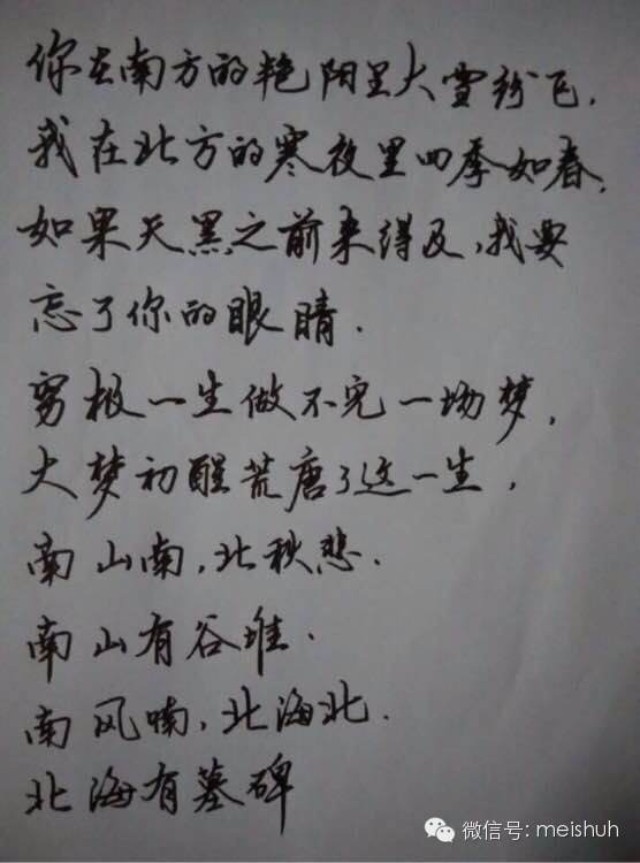 你在南方的艳阳里大雪纷飞,
我在北方的寒夜里四季如春,
如果天黑之前来得及,我要
忘了你的眼睛.
穷极一生做不完一场梦,
大梦初醒荒唐了这一生,
南山南,北秋悲.
南山有谷堆.
南风喃,北海北.
北海有墓碑
微信号: meishuh